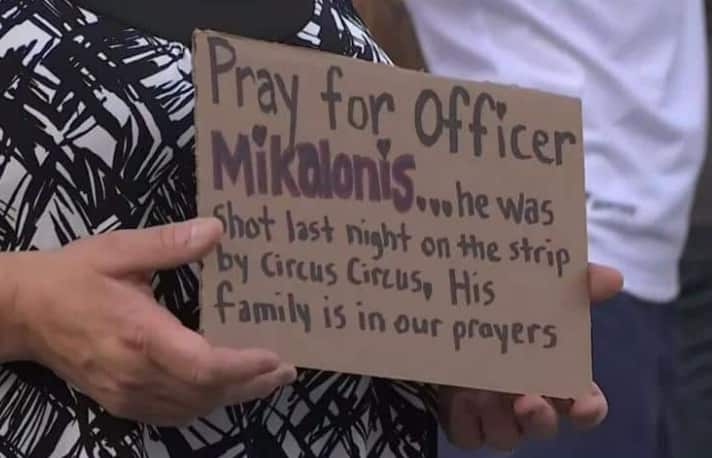 Pray for Officer
Mikalonis...he was
shot last night on the strip
by Circus Circus, His
family is in our prayers